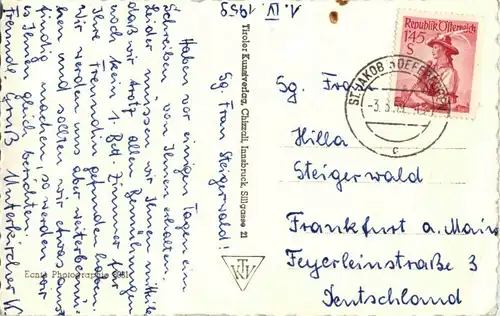 1. IV. 1959
Sg. Frau Steigerwald!
Haben vor einigen Tagen ein
Schreiben von Ihnen erhalten.
Leider müssen wir Ihnen mitteilen
daß wir trotz allen Bemühungen
noch kein 1. Bett Zimmer für
Ihre Freundin gefunden haben.
Wir werden uns aber weiterbemü-
hen und sollten wir etwas aus-
findig machen, so werden wir
es Ihnen gleich berichten.
Freundl. Gruß Unterkircher
Tiroler Kunstverlag, Chizzali, Innsbruck, Sillgasse 21
Echte Photographie
TKV
Republik Österreich
1·45
S
ST. JAKOB
c
Sg. Frau
Hilla
Steigerwald
Frankfurt a. Main
Feyerleinstraße 3
Deutschland